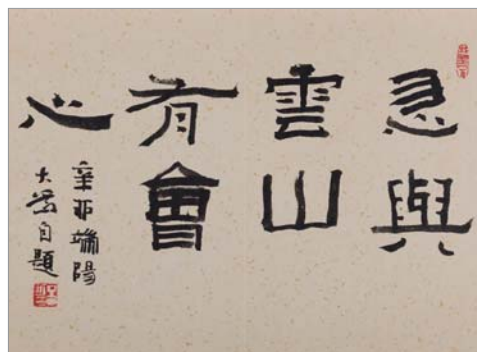 忽與
雲山
有會
心
辛端陽
大自題